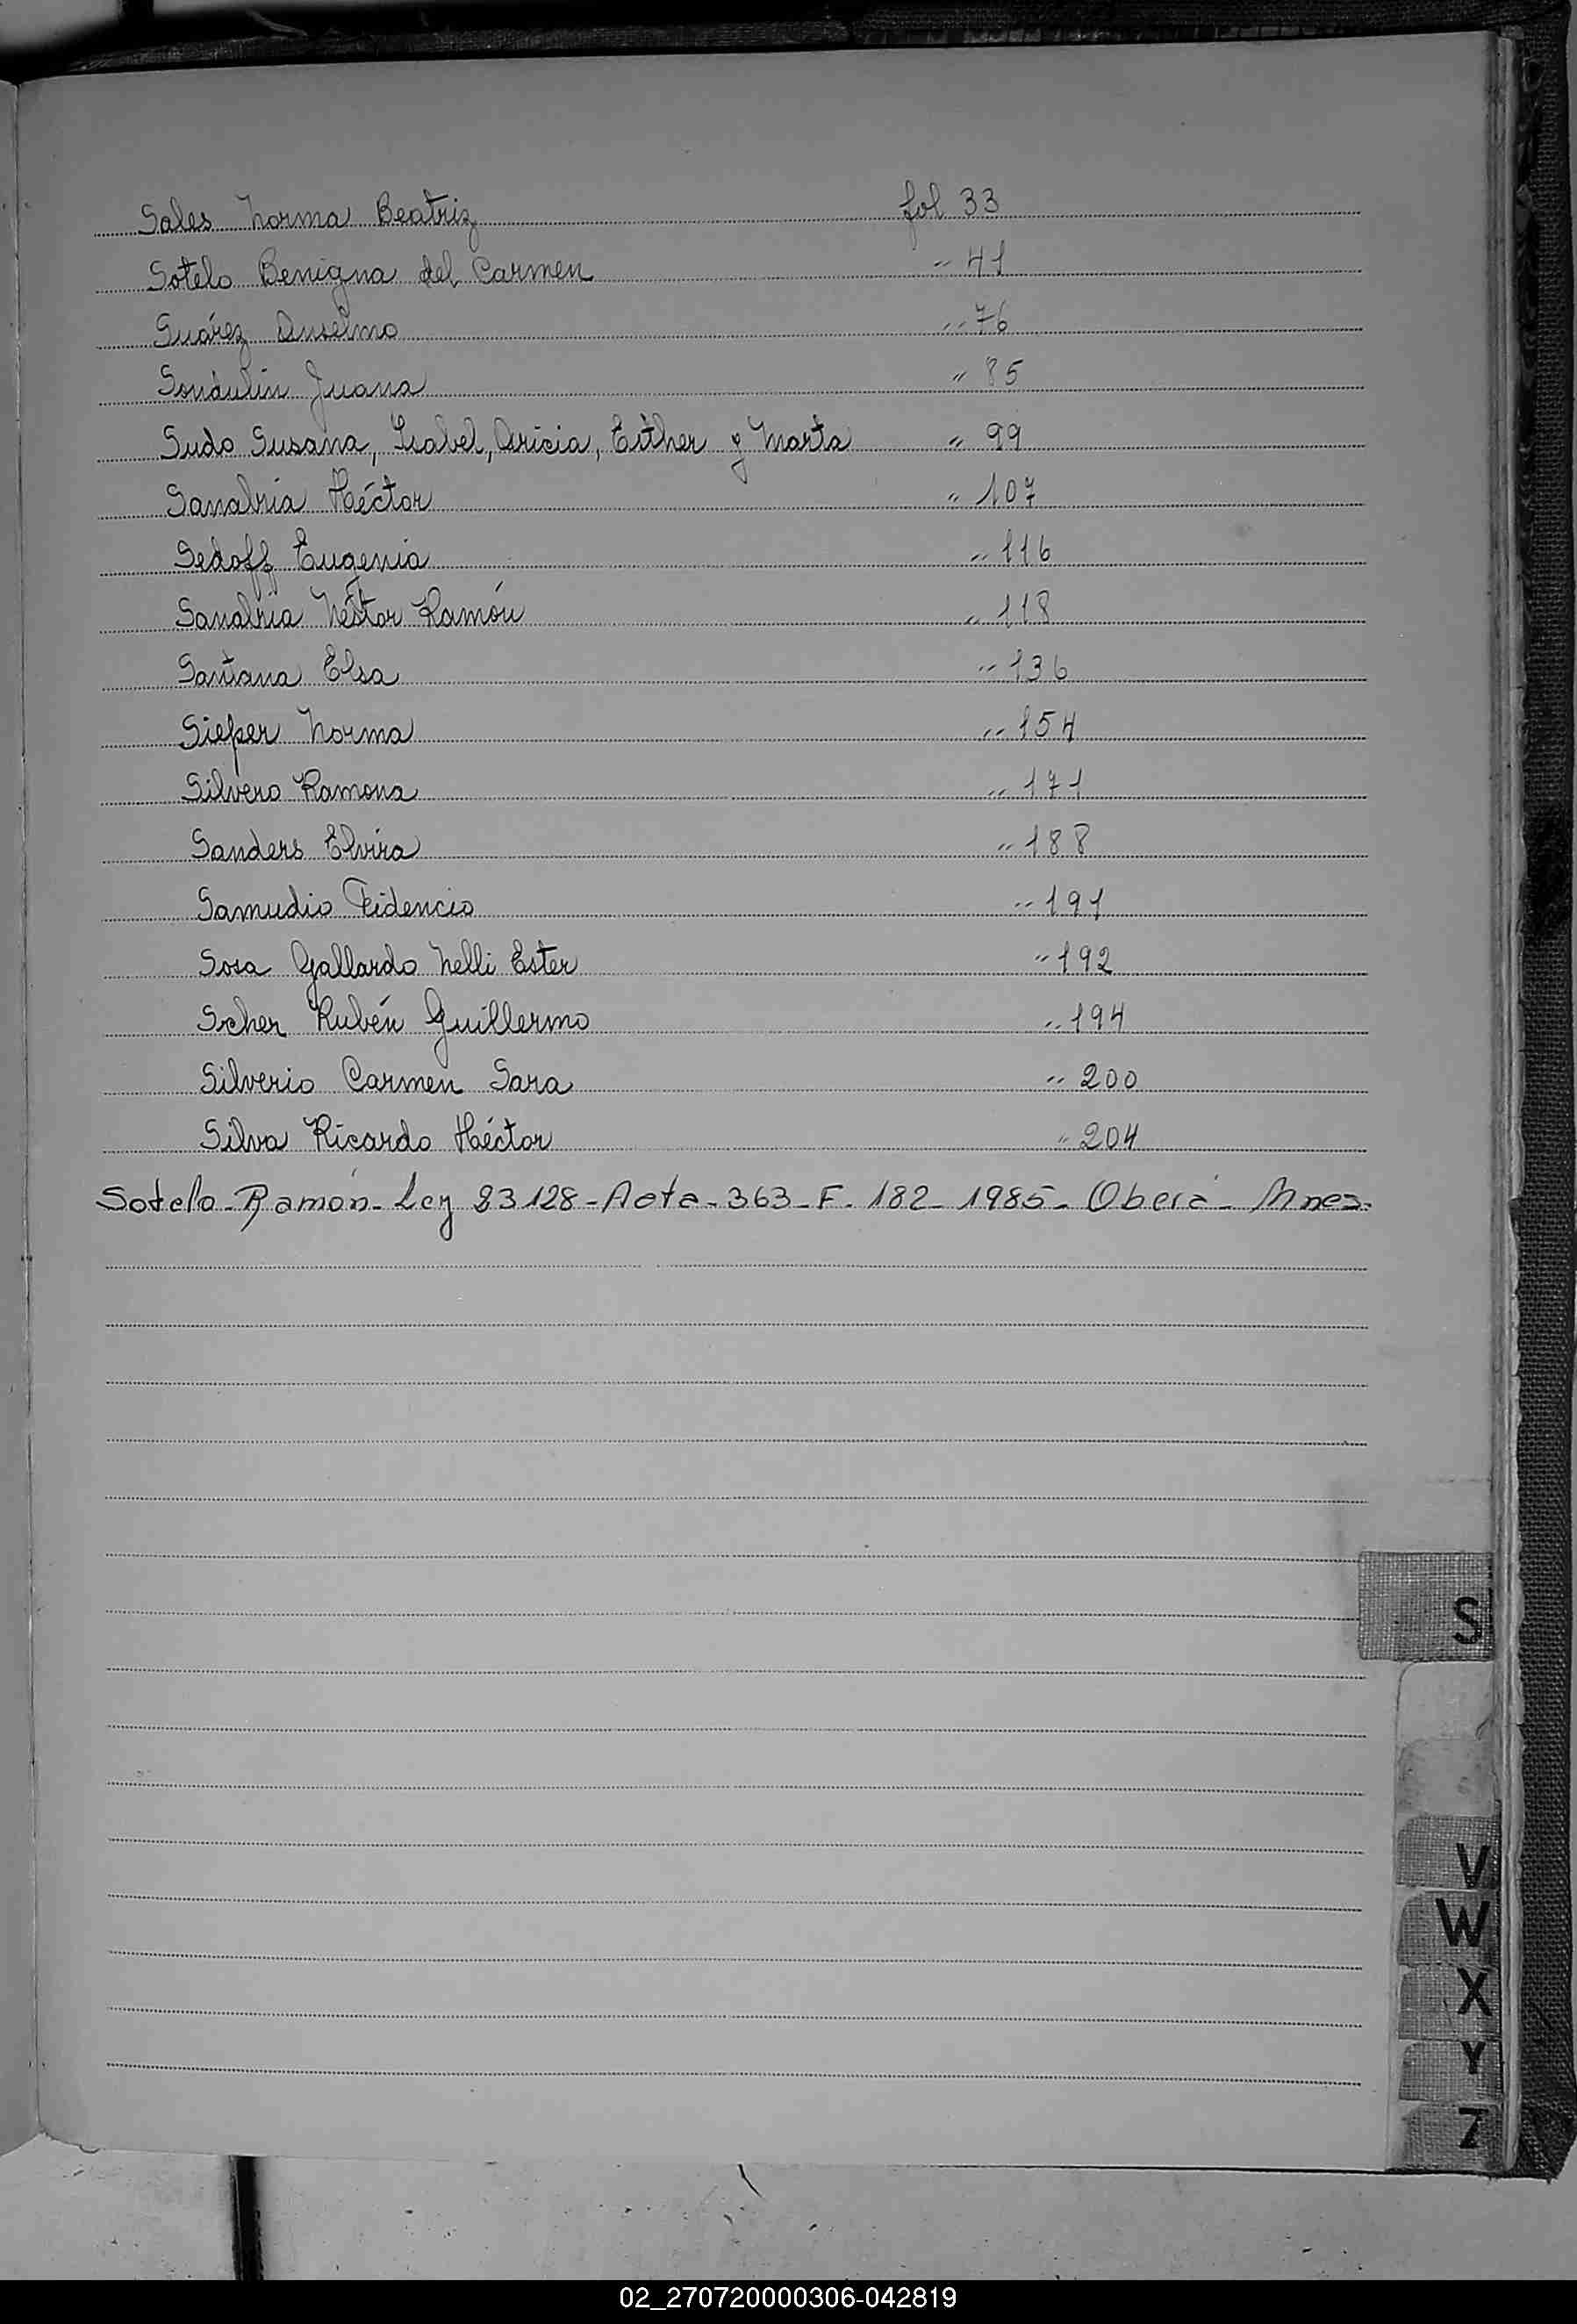 Sales Norma Beatriz fol 33
Sotelo Benigna del Carmen " 41
Suárez Anselmo " 76
Sondulin Juana " 85
Sudo Susana, Isabel, Aricia, Esther y Marta " 99
Sanabria Héctor " 107
Sedoff Eugenia " 116
Sanabria Néstor Ramón " 118
Santana Elsa " 136
Sieper Norma " 154
Silvero Ramona " 171
Sanders Elvira " 188
Samudio Fidencio " 191
Sosa Gallardo Nelli Ester " 192
Scher Rubén Guillermo " 194
Silverio Carmen Sara " 200
Silva Ricardo Héctor " 204
Sotelo - Ramón - Ley 23128 - Acta - 363 - F. 182 - 1985 - Oberá - Mnes.
S
V
W
X
Y
Z
02_270720000306-042819